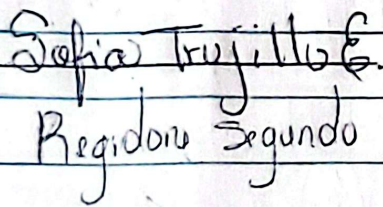 Sofia Trujillo E.
Regidora Segundo